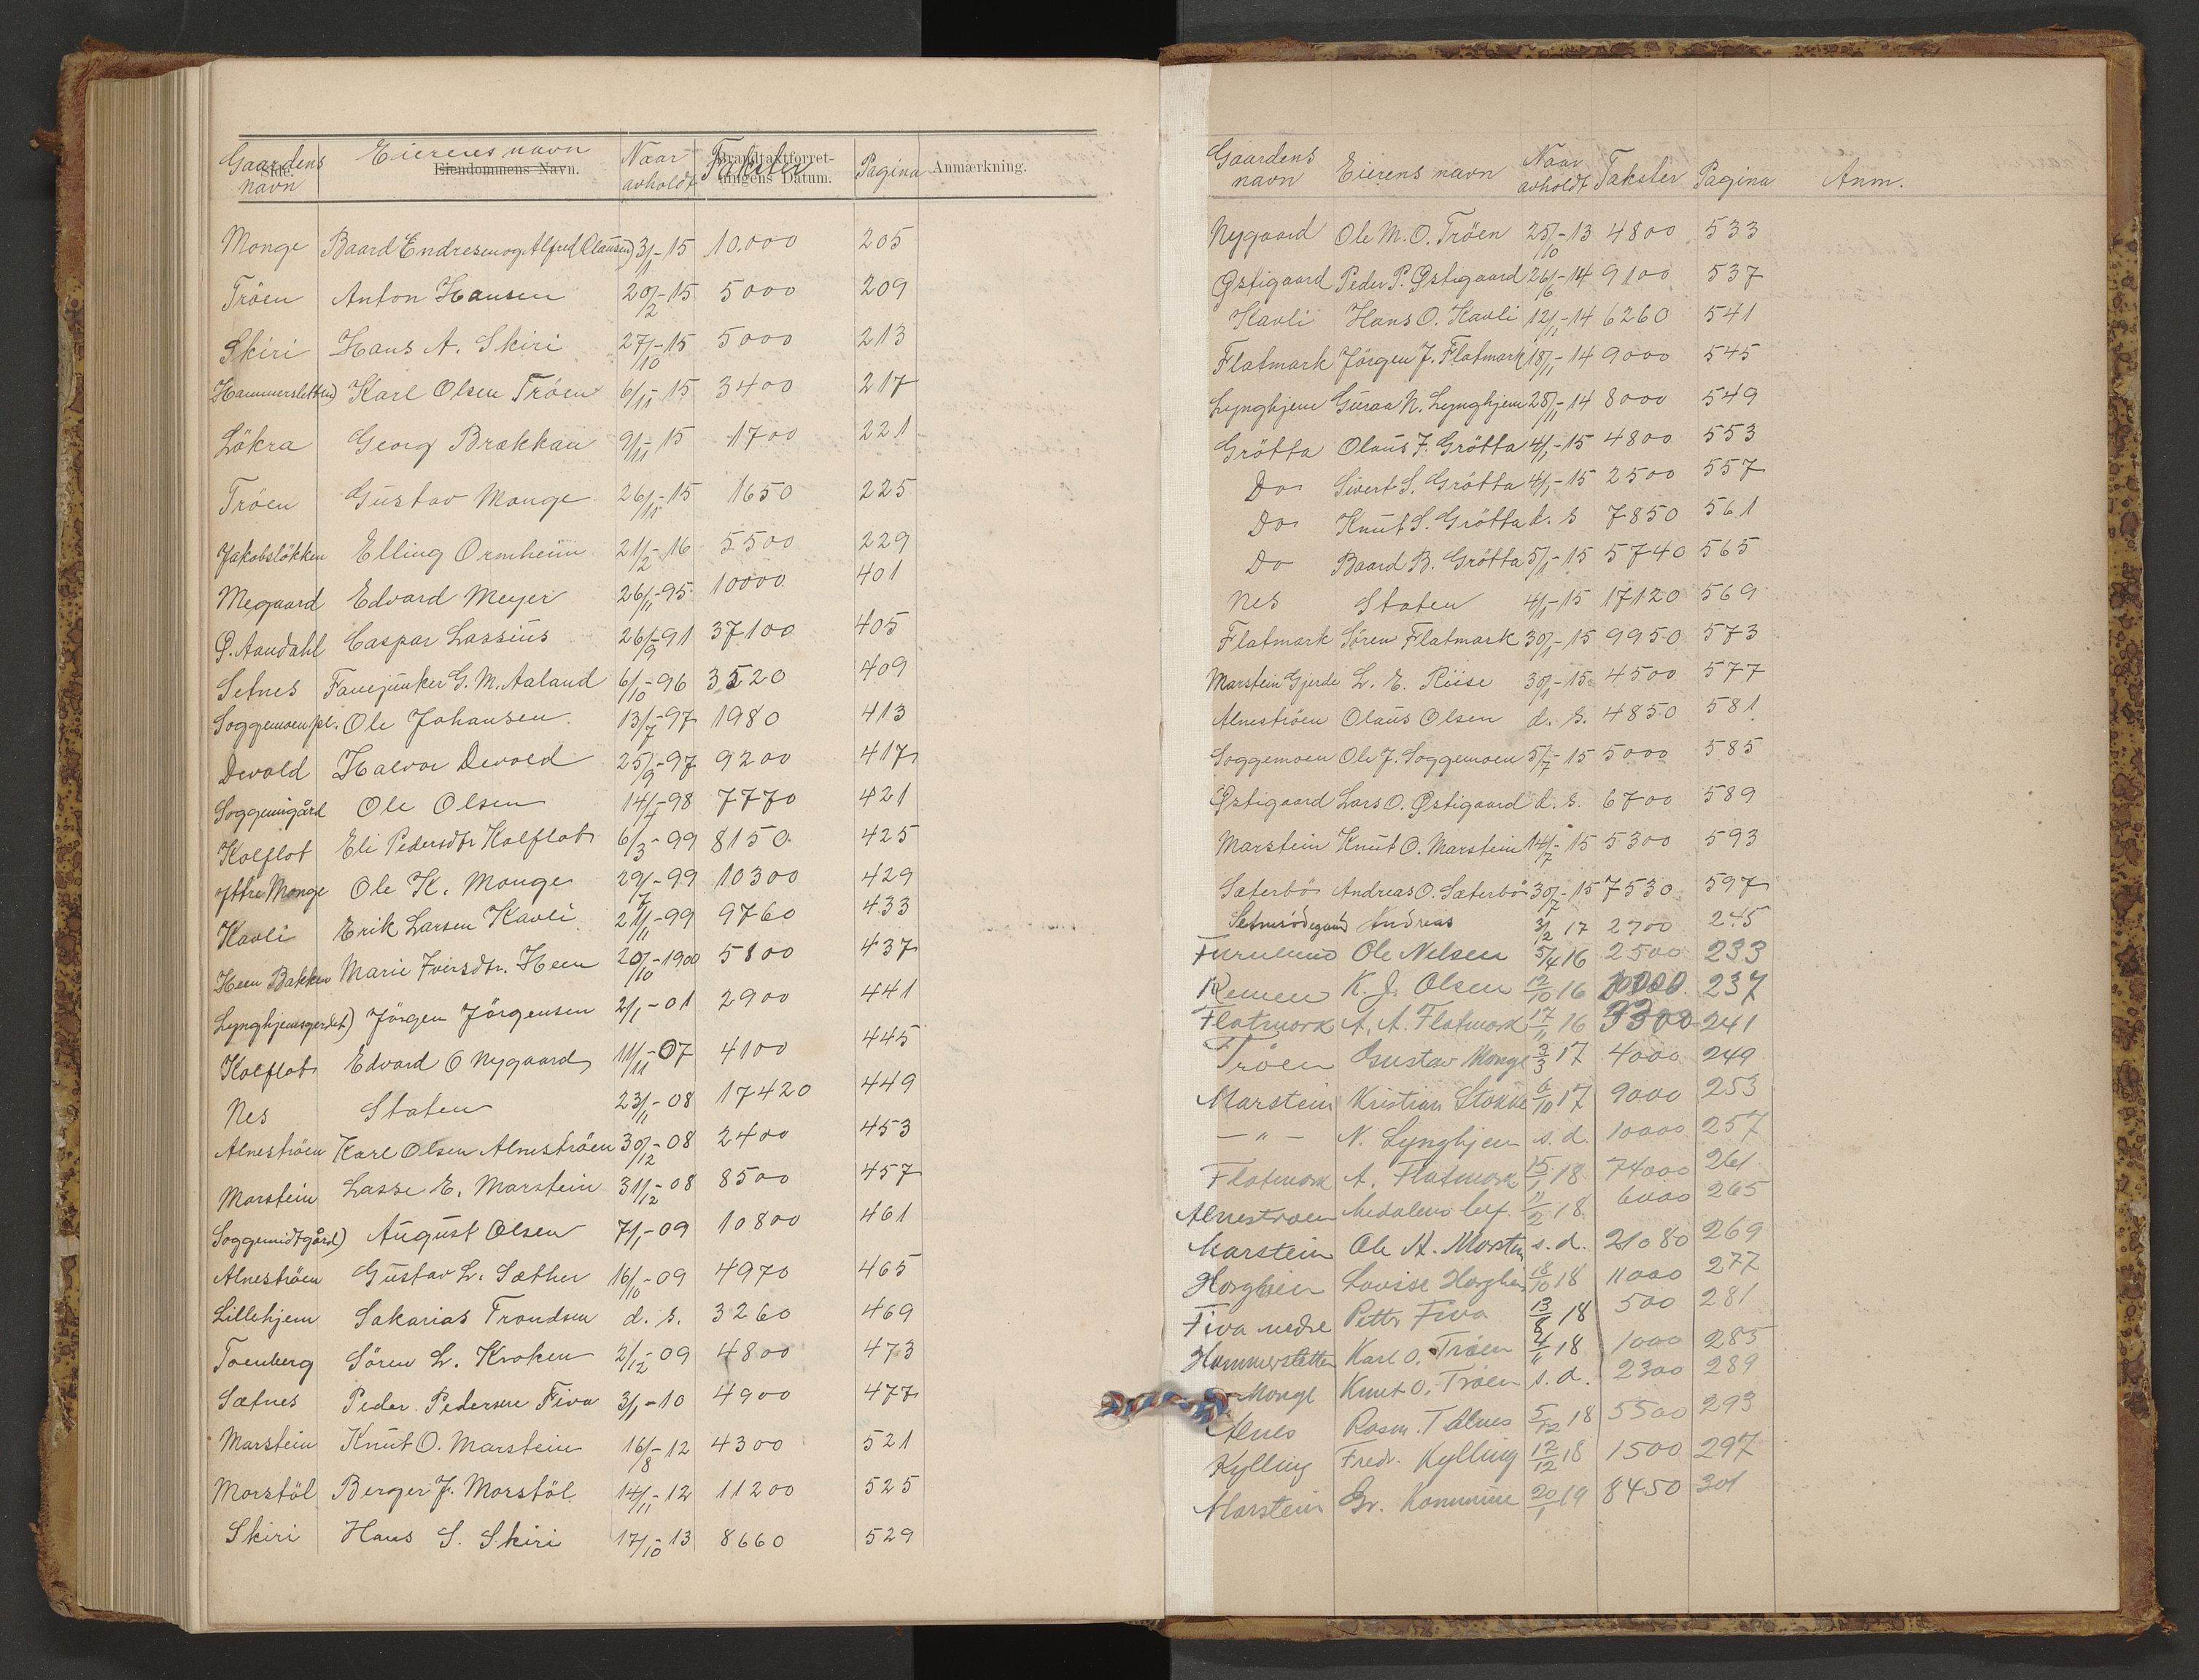 Gaardens navn Eierens navn Naar avholdt Takster Pagina Anmærkning.
Side. Eiendommens Navn. Brandtaktforretningens Datum.
Monge Baard Endresen og Alfred Clausen) 3/1-15 10.000 205
Tröen Anton Hansen 20/2-15 5000 209
Skiri Hans A. Skiri 27/10-15 5000 213
Hammersletten) Karl Olsen Tröen 6/11-15 3400 217
Lökra Georg Brækkan 9/11-15 1700 221
Tröen Gustav Monge 26/11-15 1650 225
Jakobslökken Elling Ormheim 21/2-16 5500 229
Megaard Edvard Meyer 26/11-95 10000 401
Ø. Aandahl Caspar Lassius 26/9-91 37100 405
Setnes Fanejunker G. M. Aaland 6/10-96 3520 409
Soggemoen pl. Ole Johansen 13/7-97 1980 413
Devold Halvor Devold 25/9-97 9200 417
Soggemigård Ole Olsen 14/1-98 7770 421
Kolflot Eli Pedersdtr Kolflot 6/3-99 8150 425
Yttre Monge Ole K. Monge 29/7-99 10300 429
Kavli Erik Larsen Kavli 21/11-99 9760 433
Heen Bakken Marie Iversdtr. Heen 20/10-1900 5800 437
Lynghjemsgerdet) Jörgen Jörgensen 2/1-01 2900 441
Kolflot Edvard O Nygaard 11/11-07 4100 445
Nes Staten 23/1-08 17420 449
Alneströen Karl Olsen Alneströen 30/12-08 2400 453
Marstein Lasse E. Marstein 31/12-08 8500 457
Soggemidtgård) August Olsen 7/1-09 10800 461
Alneströen Gustav L. Sæther 16/10-09 4970 465
Lillehjem Sakarias Trondsen d. s. 3260 469
Toenberg Sören L. Kroken 2/12-09 4800 473
Sætnes Peder Pedersen Fiva 3/1-10 4900 477
Marstein Knut O. Marstein 16/8-12 4300 521
Morstöl Berger J. Morstöl 14/11-12 11200 525
Skiri Hans S. Skiri 17/10-13 8660 529
Gaardens navn Eierens navn Naar avholdt Takster Pagina Anm.
Nygaard Ole M. O. Tröen 25/10-13 4800 533
Østigaard Peder P. Østigaard 26/6-14 9100 537
Kavli Hans O. Kavli 12/11-14 6260 541
Flatmark Jörgen J. Flatmark 18/11-14 9000 545
Lynghjem Guraa N. Lynghjem 28/11-14 8000 549
Grötta Olaus F. Grötta 4/1-15 4800 553
Do Sivert S. Grötta 4/1-15 2500 557
Do Knut S. Grötta d. s 7850 561
Do Baard B. Grötta 5/1-15 5740 565
Nes Staten 4/1-15 17120 569
Flatmark Sören Flatmark 30/1-15 9950 573
Marstein Gjerde L. E. Riise 30/1-15 4500 577
Alneströen Olaus Olsen d. s. 4850 581
Soggemoen Ole J. Soggemoen 5/7-15 5000 585
Østigaard Lars O. Østigaard d. s. 6700 589
Marstein Knut O. Marstein 14/7-15 5300 593
Sæterbö Andreas O. Sæterbö 30/7-15 7530 597
Andreas 3/2 17 2700 245
Furulund Ole Nelsen 5/4 16 2500 233
Remen K. J. Olsen 12/10 16 237
Flatmark A. A. Flatmark 17/11 16 3300 241
Tröen Gustav Monge 3/3 17 4000 249
Marstein Kristian Stokke 6/10 17 9000 253
— " — N. Lynghjem s. d. 10000 257
Flatmark A. Flatmark 15/1 18 74000 261
Alnestroen 11/2 18 6000 265
Marstein Ole H. Marstein s. d. 21080 269
Horgheim Lovise Horgheim 18/10 18 11000 277
Fiva nedre Petter Fiva 13/8 18 500 281
Hammersletten Karl O. Tröen 4/11 18 1000 285
Monge Knut O. Tröen s. d. 2300 289
Alnes Rasm. T. Alnes 5/12 18 5500 293
Kylling Fredr. Kylling 12/12 18 1500 297
Marstein Gr. Kommune 20/1 19 8450 301